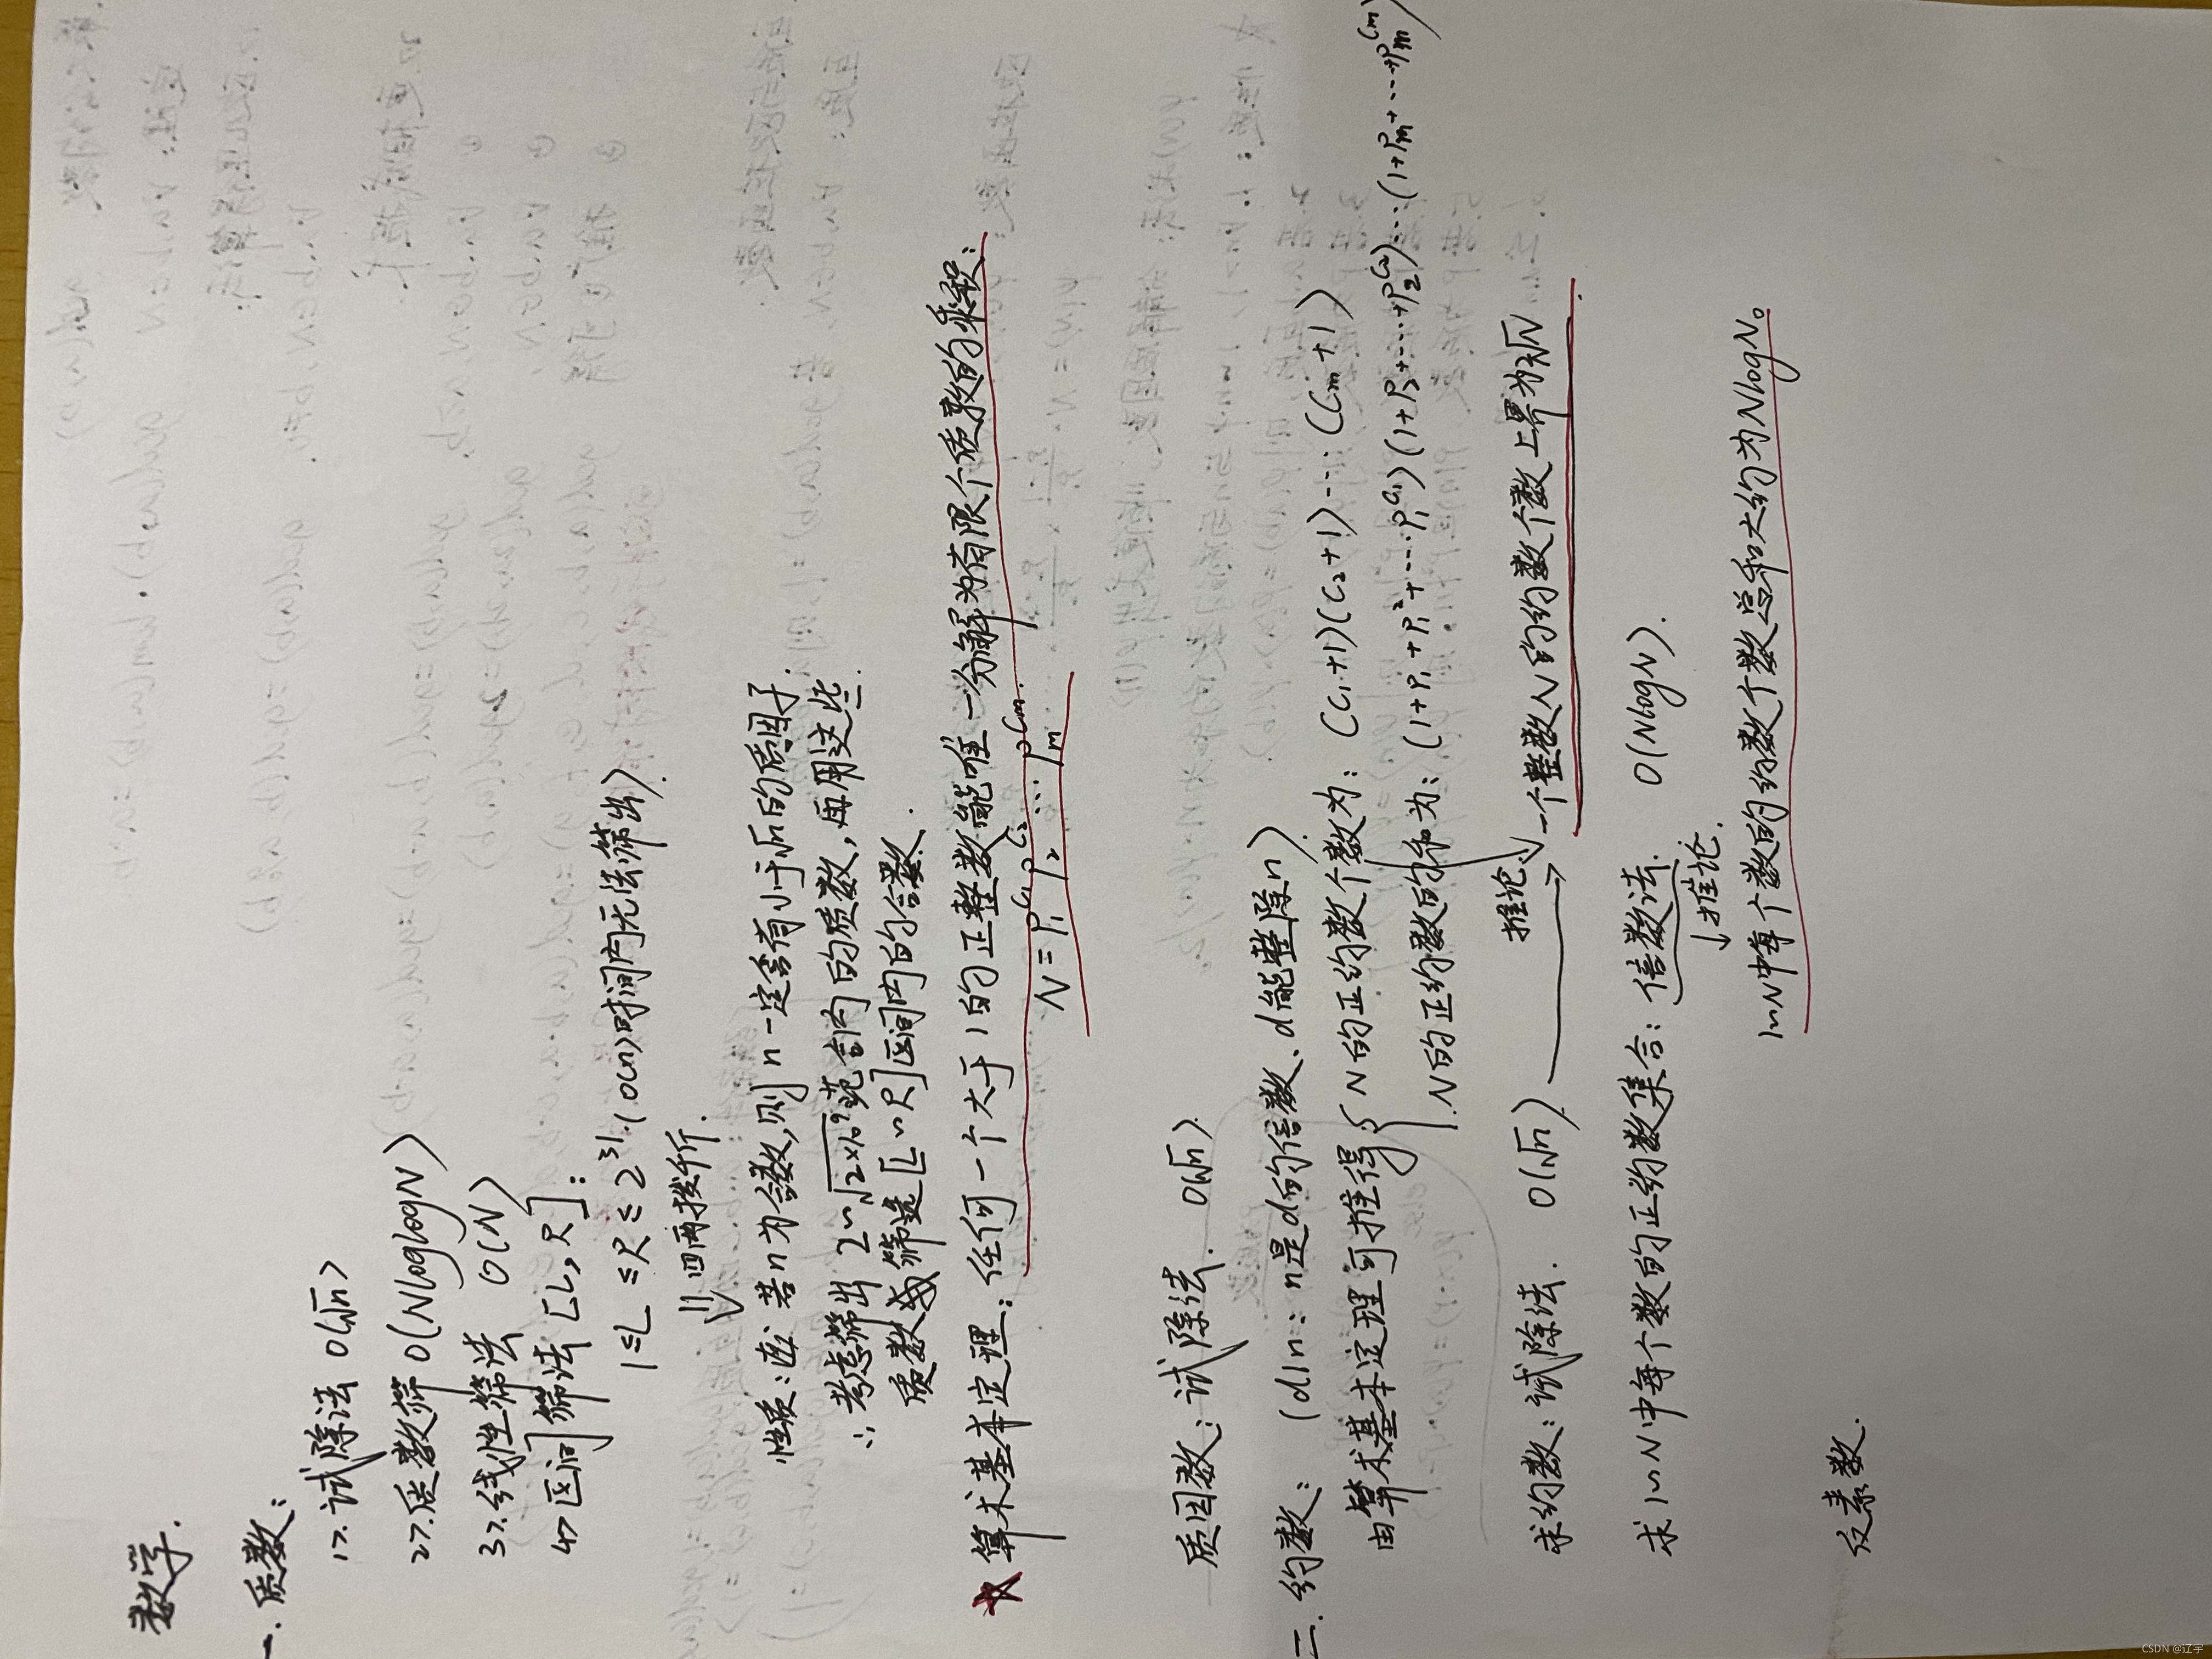 数学.
一. 质数:
1>. 试除法 O(√n)
2>. 质数筛 O(NloglogN)
3>. 线性筛法 O(N)
4> 区间筛法 [L, R]:
1≤L≤R≤2³¹. (O(n)时间内无法筛出).
⇓ 四两拨千斤.
性质: 若n为合数,则n一定含有小于√n的质因子.
∴考虑筛出 2~√范围内的质数,再用这些
质数筛选[L~R]区间内的合数.
算术基本定理: 任何一个大于1的正整数能唯一分解为有限个质数的乘积:
N = P₁^C₁ P₂^C₂ ... Pₘ^Cₘ.
质因数: 试除法. O(√n).
二. 约数: (d|n: n是d的倍数、d能整除n).
由算术基本定理可推得 { N的正约数个数为: (C₁+1)(C₂+1)...(Cₘ+1)
N的正约数的和为: (1+P₁+P₁²+...P₁^C₁)(1+P₂+...+P₂^C₂)...(1+Pₘ+...+Pₘ^Cₘ)
推论 一个整数N的约数个数上界为2√N.
求约数: 试除法. O(√n).
求1~N中每个数的正约数集合: 倍数法. O(NlogN).
↓推论.
1~N中每个数的约数个数总和大约为NlogN。
反素数.
CSDN @辽宇